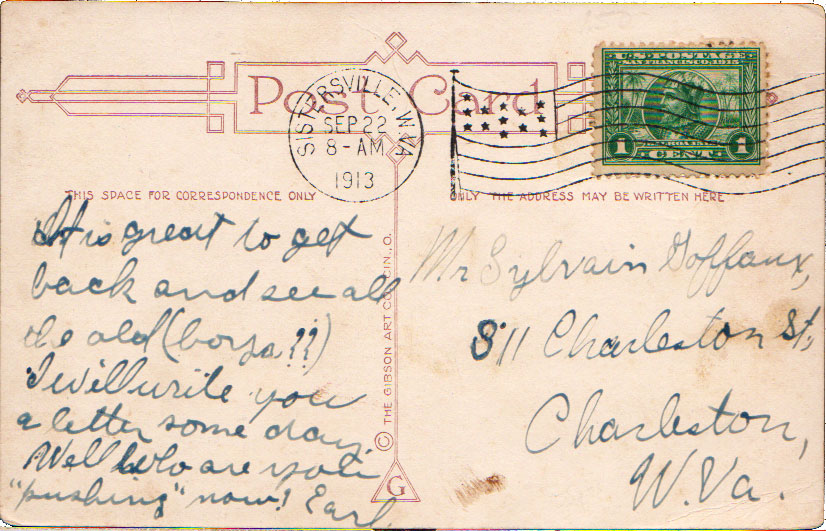 Post Card
SISTERSVILLE, W.VA.
SEP 22
8-AM
1913
U.S. POSTAGE
SAN FRANCISCO, 1915
BALBOA 1513
1 CENT 1
THIS SPACE FOR CORRESPONDENCE ONLY
ONLY THE ADDRESS MAY BE WRITTEN HERE
It is great to get
back and see all
the old (boys??)
I will write you
a letter some day.
Well who are you
"pushing" now! Earl
© THE GIBSON ART CO. CIN., O.
G
Mr Sylvain Goffaux,
811 Charleston St,
Charleston,
W. Va.